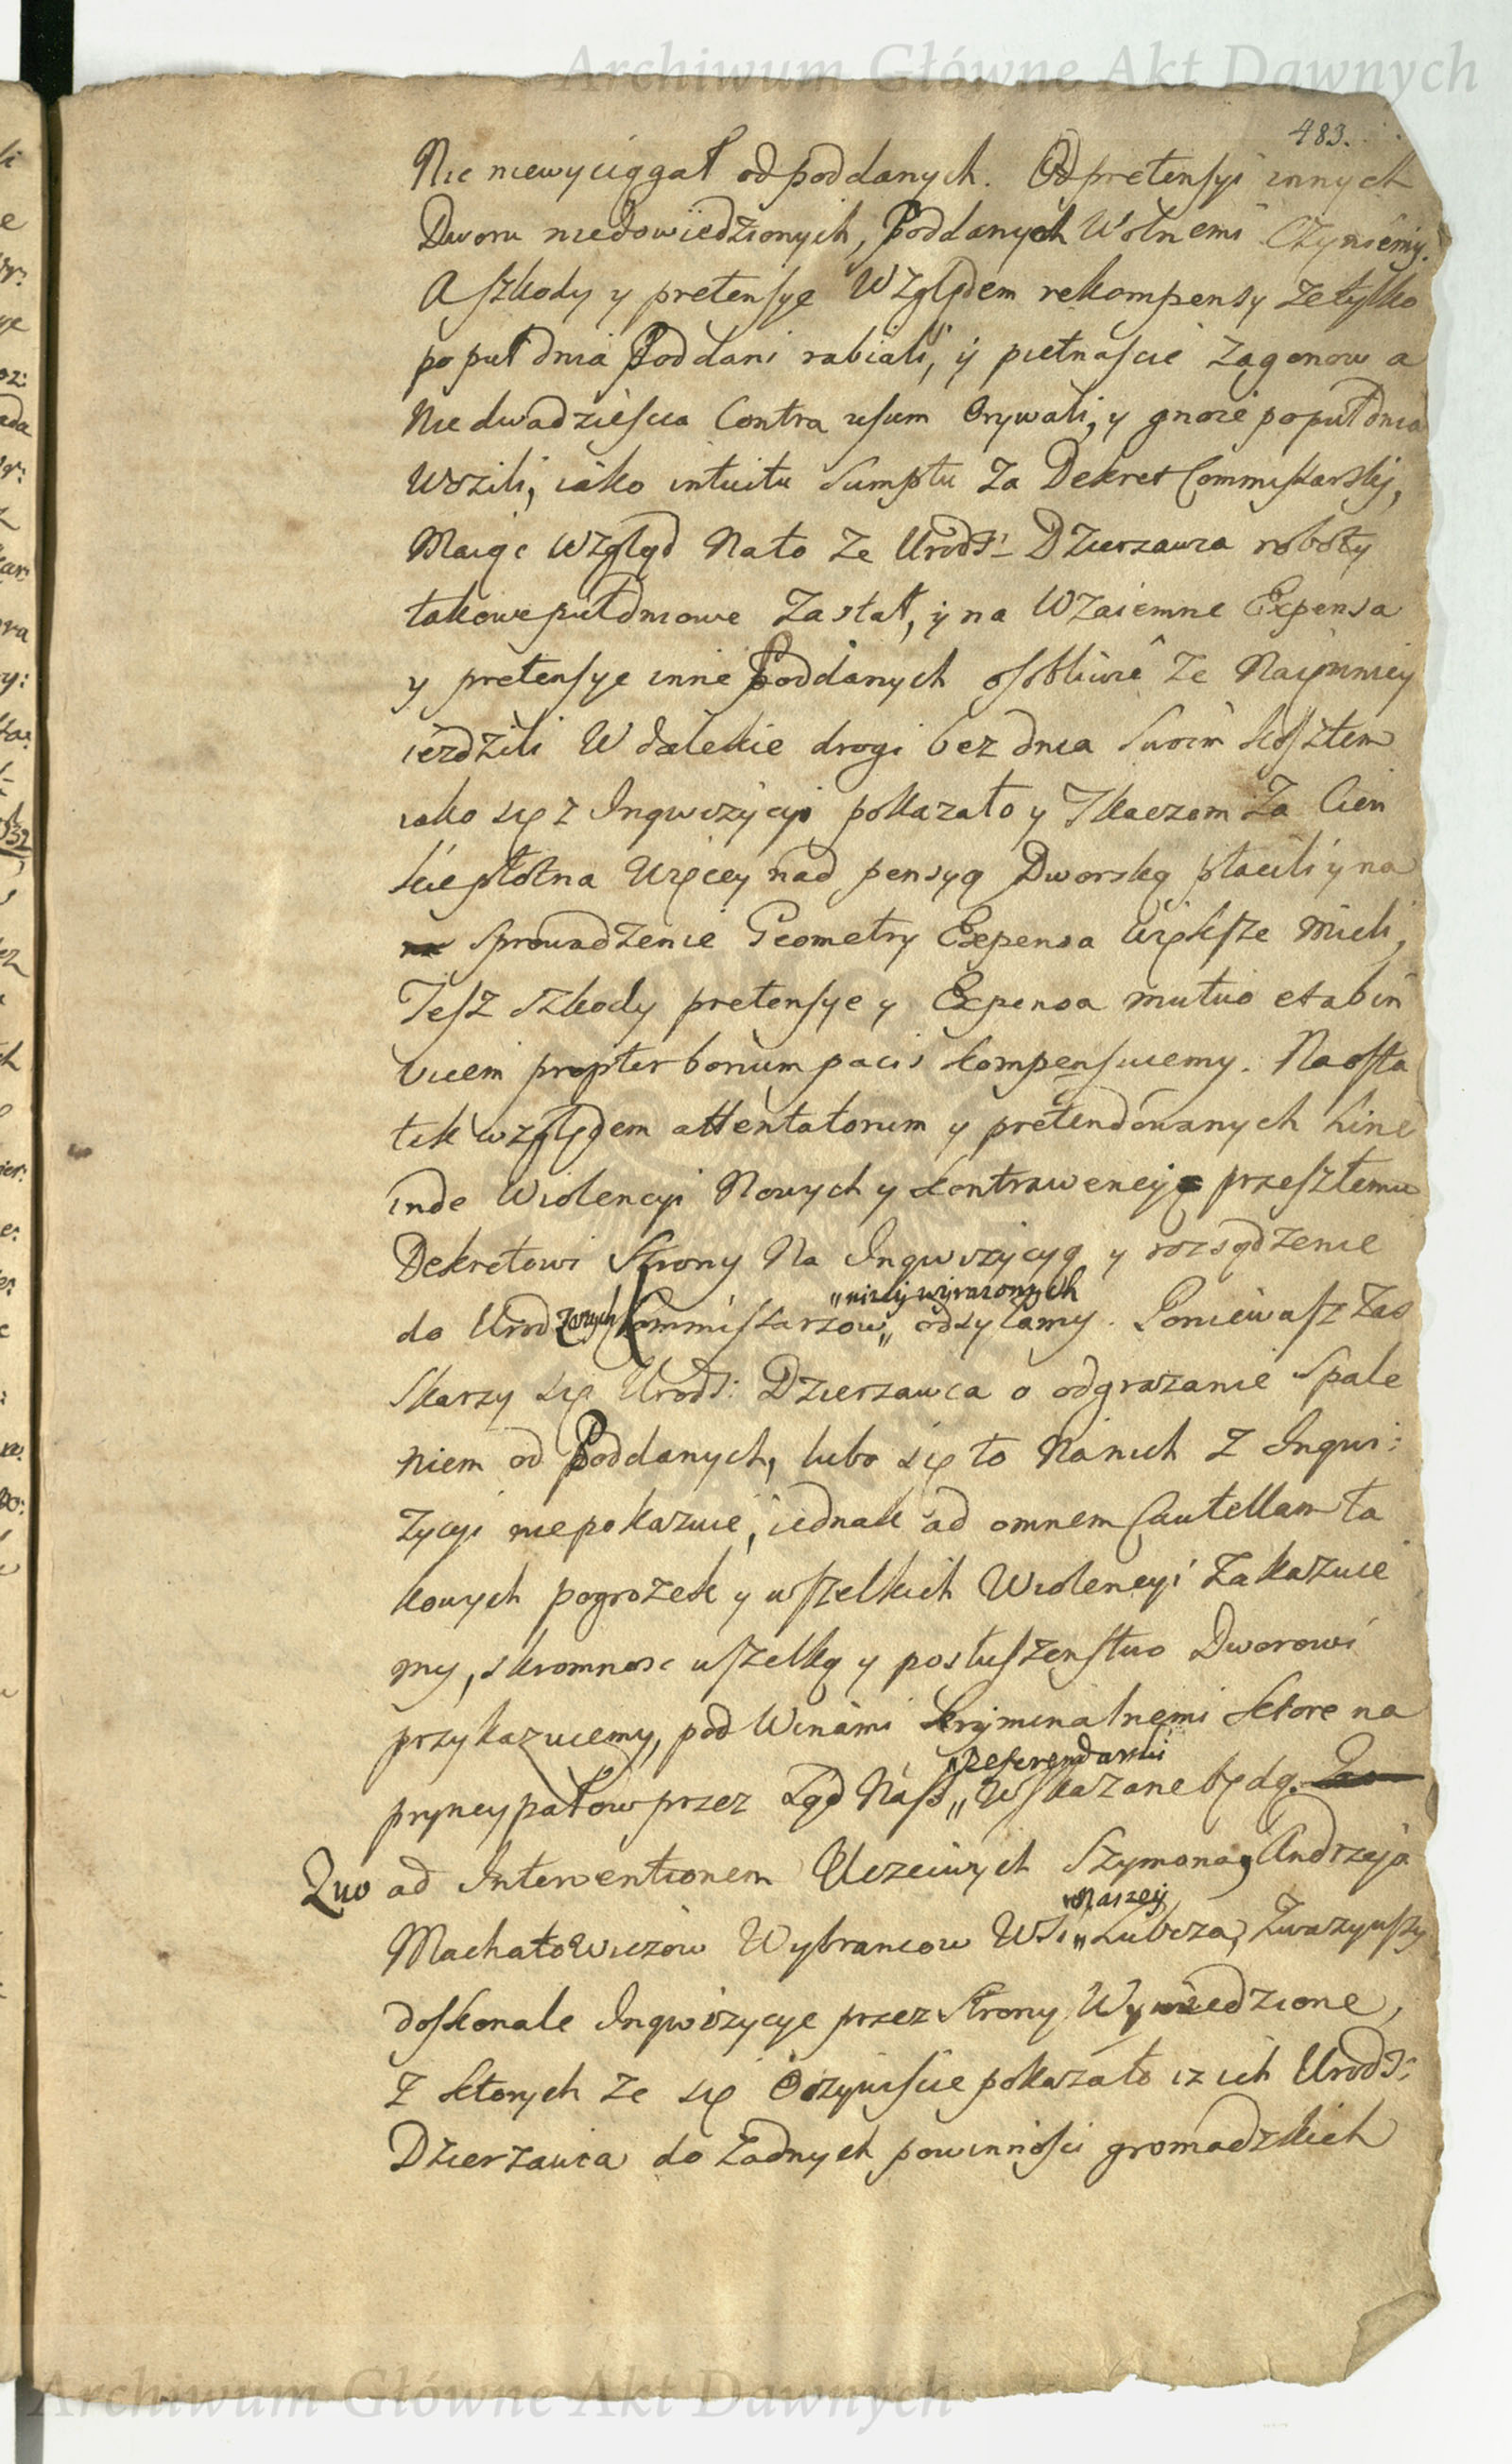 Archiwum Główne Akt Dawnych
483.
Nic niewyciągał od poddanych. Od pretensyi innych
Dworu niedowiedzionych, Poddanych Wolnemi Czyniemy.
A szkody y pretensye Względem rekompensy że tylko
po puł dnia Poddani rabiali, ÿ pietnascie zagonow a
Nie dwadziescia Contra usum Orywali, y gnoie po puł dnia
Wozili, iáko intuitu Sumptu za Dekret Commissarski,
Maiąc Wzgląd Nato że Urodz: Dzierzawca roboty
takowe pułdniowe zastał, ÿ na Wzaiemne Expensa
y pretensye inne Poddanych osobliwie że Naÿmniey
ieżdzili W dalekie drogi bez dnia swoim kosztem
iako się z Inqwizycyi pokazało y Tkaczom za Cien
kie płotna Więcey nad pensyą Dworską płacili y na
Sprowadzenie Geometry Expensa Większe mieli,
Tesz szkody pretensye y Expensa mutuo et ab in
vicem propter bonum pacis kompensuiemy. Na osta
tek względem attentatorum y pretendowanych hinc
inde Wiolencyi Nowych y kontrawencyi przeszłemu
Dekretowi Strony Na Inqwizycyą y rozsądzenie
„niżej wyrażonych
do Urodzonych Kommissarzow „ odsyłamy. Poniewasz zas
Skarzy się Urodz: Dzierzawca o odgrazanie Spale
niem od Poddanych, lubo się to Na nich z Inqwi:
zycyi niepokazuie, iednak ad omnem Cautellam ta
kowych pogrozek y wszelkich Wiolencyi zakazuie
my, skromnosc wszelką y posłuszenstwo Dworowi
przykazuiemy, pod Winami kryminalnemi ktore na
„Referendarski
pryncypałow przez Sąd Nasz „ Wskazane będą.
Quo ad Interventionem Uczciwych Szymona y Andrzeja
„Naszey
Machałowiczow Wybrancow Wsi „ Lubcza, Zwazywszy
doskonale Inqwizycye przez Strony Wywiedzione,
z ktorych że się Oczywiscie pokazało iz ich Urodz:
Dzierzawca do żadnych powinnosci gromadzkich
Archiwum Główne Akt Dawnych